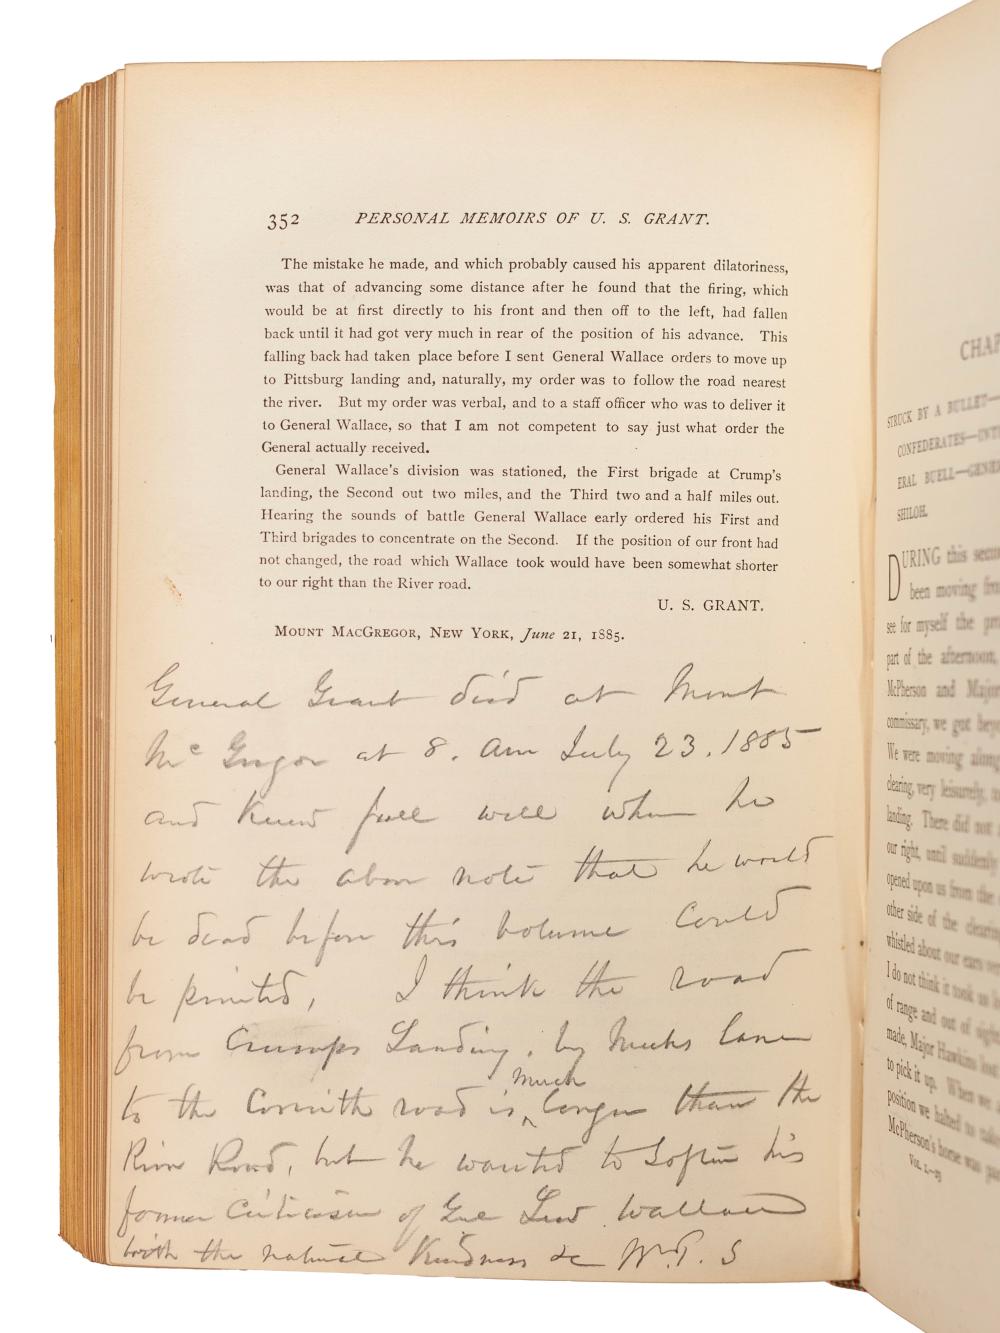 352 PERSONAL MEMOIRS OF U. S. GRANT.
The mistake he made, and which probably caused his apparent dilatoriness,
was that of advancing some distance after he found that the firing, which
would be at first directly to his front and then off to the left, had fallen
back until it had got very much in rear of the position of his advance. This
falling back had taken place before I sent General Wallace orders to move up
to Pittsburg landing and, naturally, my order was to follow the road nearest
the river. But my order was verbal, and to a staff officer who was to deliver it
to General Wallace, so that I am not competent to say just what order the
General actually received.
General Wallace's division was stationed, the First brigade at Crump's
landing, the Second out two miles, and the Third two and a half miles out.
Hearing the sounds of battle General Wallace early ordered his First and
Third brigades to concentrate on the Second. If the position of our front had
not changed, the road which Wallace took would have been somewhat shorter
to our right than the River road.
U. S. GRANT.
MOUNT MACGREGOR, NEW YORK, June 21, 1885.
General Grant died at Mount
McGregor at 8. am July 23. 1885
and knew full well when he
wrote the above note that he would
be dead before this volume could
be printed, I think the road
from Crumps Landing, by Meeks lane
to the Corinth road is much longer than the
River Road, but he wanted to soften his
former criticism of Genl Lew Wallace
with the natural kindness &c W.T.S
CHAP
STRUCK BY A BULLET—
CONFEDERATES—INT
ERAL BUELL—GENE
SHILOH.
DURING this seco
been moving fro
see for myself the pr
part of the afternoon,
McPherson and Major
commissary, we got bey
We were moving along
clearing, very leisurely,
landing. There did not
our right, until suddenly
opened upon us from the
other side of the clearing
whistled about our ears ver
I do not think it took us
of range and out of sight
made, Major Hawkins lost
to pick it up. When we
position we halted to
McPherson's horse was
VOL. I.—23